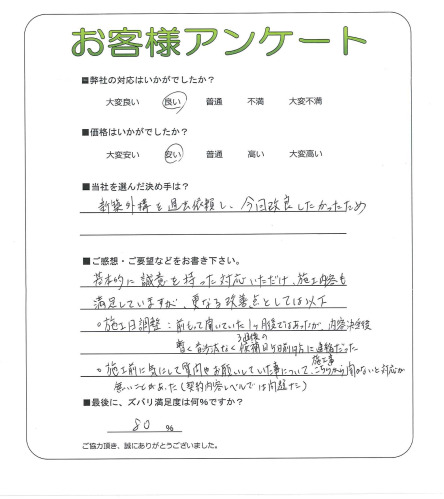 お客様アンケート
■弊社の対応はいかがでしたか?
大変良い 良い 普通 不満 大変不満
■価格はいかがでしたか?
大変安い 安い 普通 高い 大変高い
■当社を選んだ決め手は?
新築外構を過去依頼し、今回改良したかったため
■ご感想・ご要望などをお書き下さい。
基本的に誠意を持った対応いただけ、施工内容も
満足していますが、更なる改善点としては以下
○施工日調整:前もって聞いていた1ヶ月後ではあったが、内容決定後
暫く音沙汰なく候補日 日前時点に連絡だった
○施工前に気にして質問やお願いしていた事について、施工事 こちらから聞かないと対応か
無いことがあった(契約内容レベルでは問題ナシ)
■最後に、ズバリ満足度は何%ですか?
80 %
ご協力頂き、誠にありがとうございました。